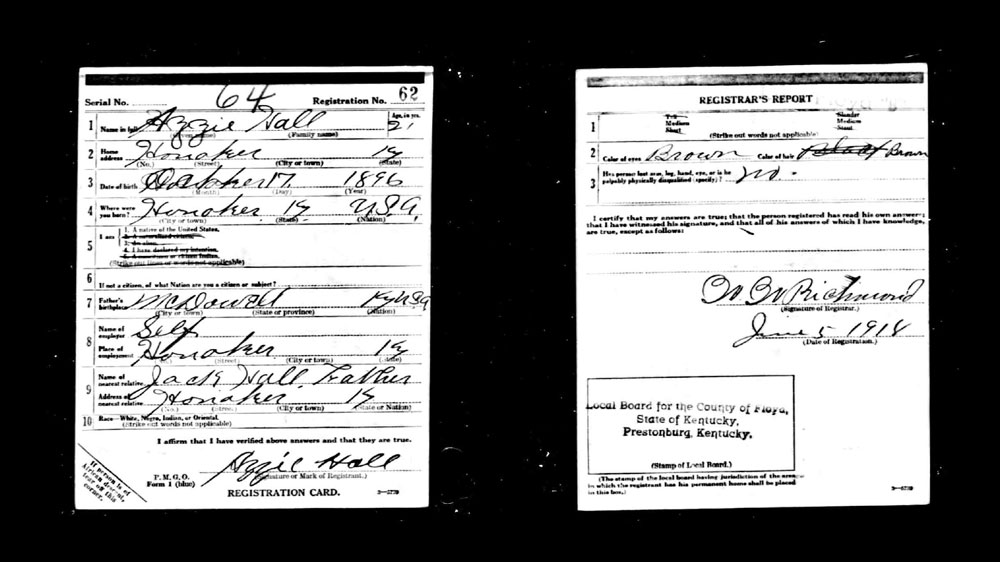 Serial No. 64 Registration No. 62
1 Name in full Azzie Hall Age, in yrs. 21
(Given name) (Family name)
2 Home address Honaker Ky
(No.) (Street) (City or town) (State)
3 Date of birth 17 1896
(Month) (Day) (Year)
4 Where were you born? Honaker Ky U.S.A.
(City or town) (State) (Nation)
5 I am
1. A native of the United States.
2. A naturalized citizen.
3. An alien.
4. I have declared my intention.
5. A noncitizen or citizen Indian.
(Strike out lines or words not applicable)
6 If not a citizen, of what Nation are you a citizen or subject?
7 Father's birthplace McDowell Ky USA
(City or town) (State or province) (Nation)
8 Name of employer Self
Place of employment Honaker Ky
(No.) (Street) (City or town) (State)
9 Name of nearest relative Jack Hall, Father
Address of nearest relative Honaker Ky
(No.) (Street) (City or town) (State or Nation)
10 Race—White, Negro, Indian, or Oriental.
(Strike out words not applicable)
I affirm that I have verified above answers and that they are true.
Azzie Hall
(Signature or Mark of Registrant.)
P. M. G. O.
Form 1 (blue)
REGISTRATION CARD.
If person is of African descent, tear off this corner.
REGISTRAR'S REPORT
1 Tall Medium Short Slender Medium Stout
(Strike out words not applicable)
2 Color of eyes Brown Color of hair Black Brown
3 Has person lost arm, leg, hand, eye, or is he palpably physically disqualified (specify)? no.
I certify that my answers are true; that the person registered has read his own answers;
that I have witnessed his signature, and that all of his answers of which I have knowledge,
are true, except as follows:
W W Richmond
(Signature of Registrar.)
June 5 1918
(Date of Registration.)
Local Board for the County of Floyd,
State of Kentucky,
Prestonburg, Kentucky.
(Stamp of Local Board.)
(The stamp of the local board having jurisdiction of the area
in which the registrant has his permanent home shall be placed
in this box.)